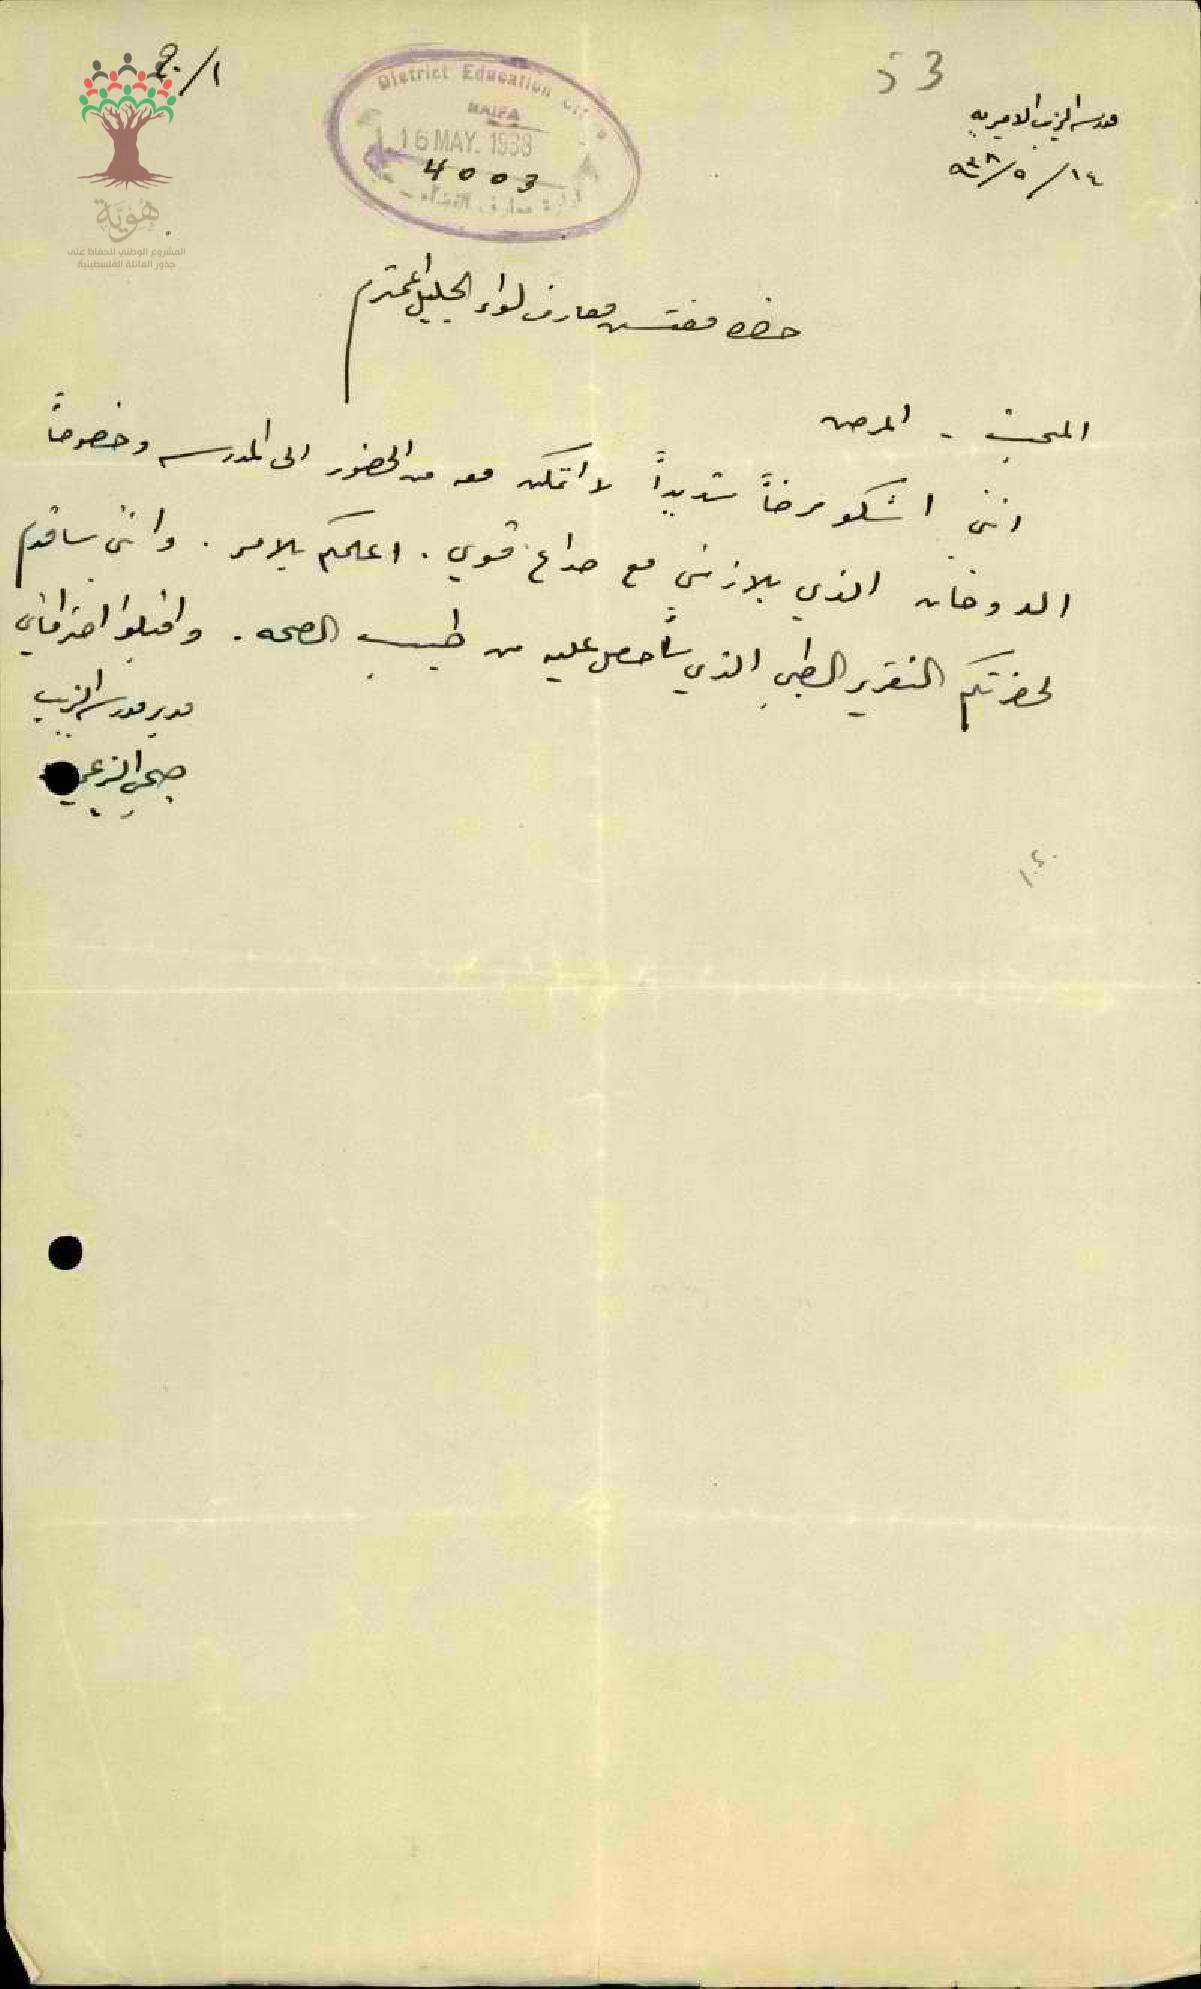 53
١/٩٠
مدرسة الزيب الاميرية
١٤/٥/٩٣٨
District Education Office
HAIFA
16 MAY. 1938
4003
ادارة معارف القضاء
هُوِيَّة
المشروع الوطني للحفاظ على
جذور العائلة الفلسطينية
حضرة مفتش معارف لواء الجليل المحترم
المبحث - المرض
انني اشكو مرضاً شديداً لا اتمكن معه من الحضور الى المدرسه وخصوصاً
الدوخان الذي يلازمني مع صداع قوي . اعلمكم بالامر . وانني ساقدم
لحضرتكم التقرير الطبي الذي سأحصل عليه من طبيب الصحه . واقبلوا احتراماتي
مدير مدرسة الزيب
صبحي الزعبي